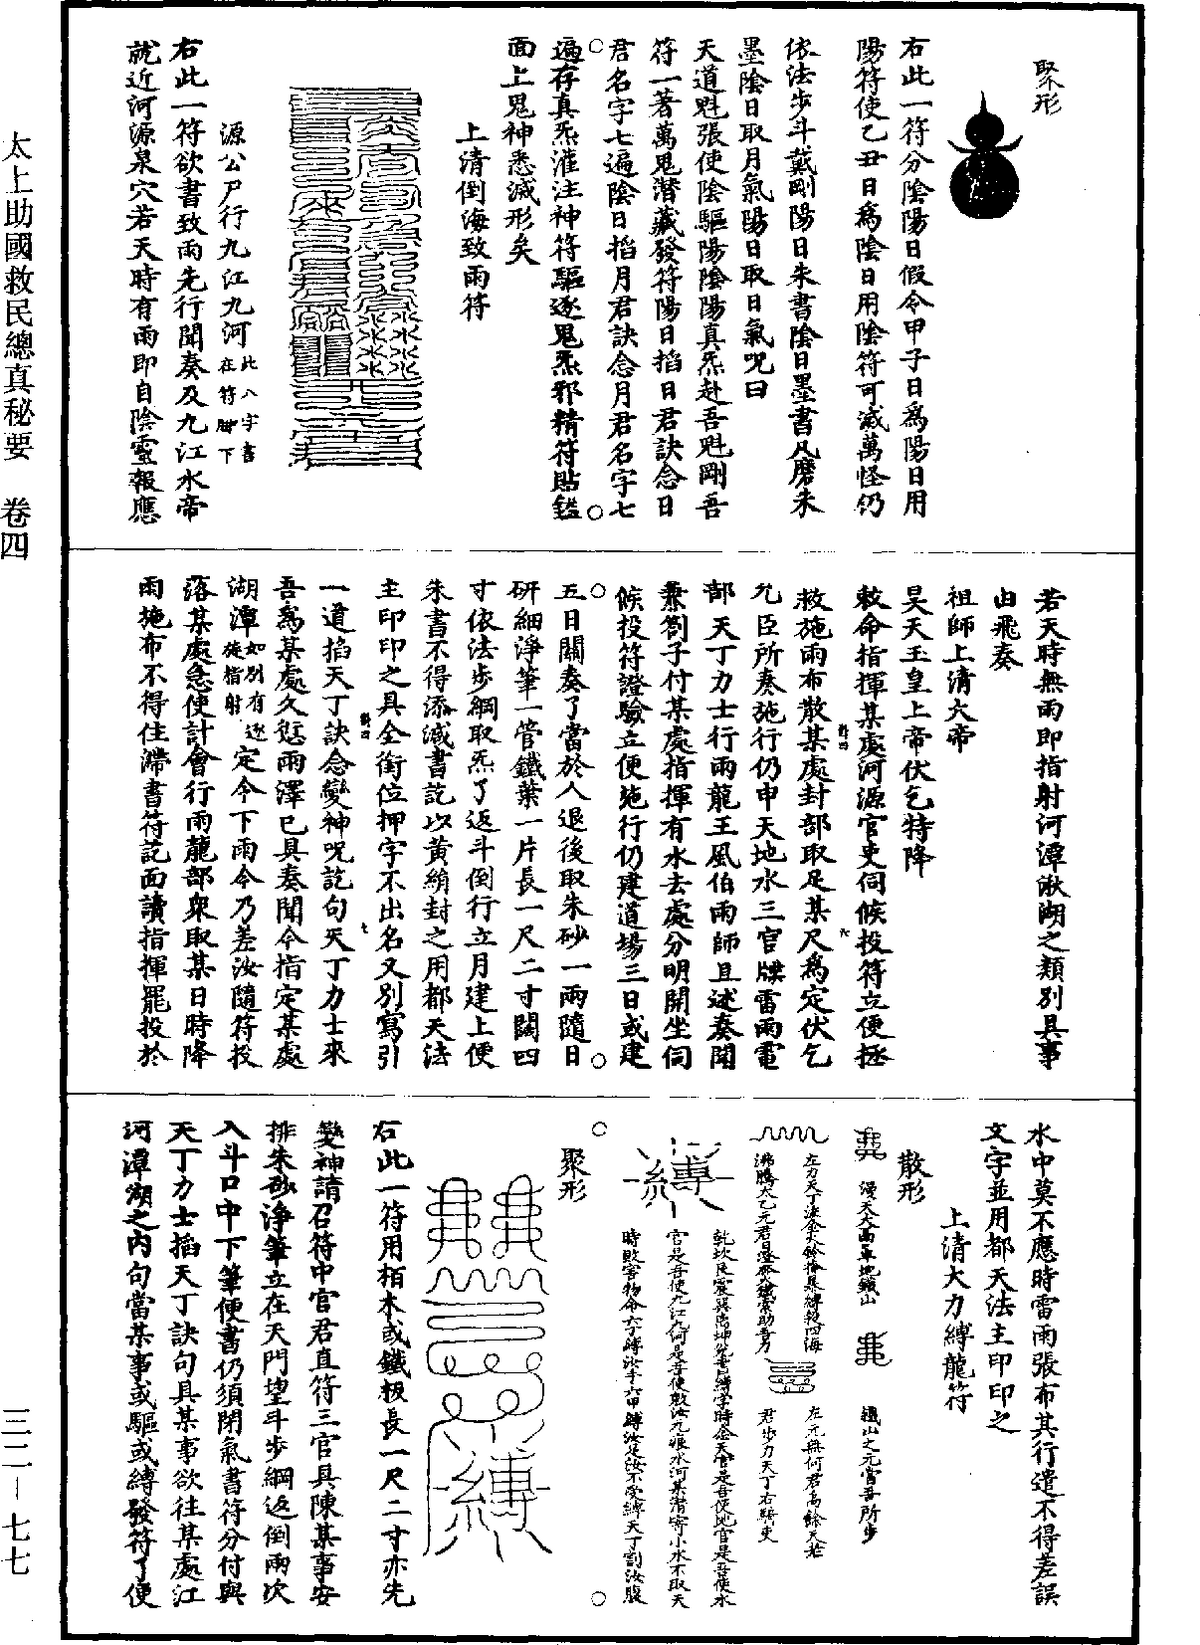 聚形
右此一符分陰陽日假令甲子日為陽日用
陽符使乙丑日為陰日用陰符可滅萬怪仍
依法步斗戴剛陽日朱書陰日墨書凡磨朱
墨陰日取月氣陽日取日氣呪曰
天道魁張使陰驅陽陰陽真炁赴吾魁剛吾
符一著萬鬼潛藏發符陽日掐日君訣念日
君名字七遍陰日掐月君訣念月君名字七
遍存真炁灌注神符驅逐鬼炁邪精符貼鎰
面上鬼神悉滅形矣
上清倒海致雨符
源公尸行九江九河此八字書在符脚下
右此一符欲書致雨先行聞奏及九江水帝
就近河源泉穴若天時有雨即自陰靈報應
若天時無雨即指射河潭湫湖之類別具事
由飛奏
祖師上清大帝
昊天玉皇上帝伏乞特降
敕命指揮某處河源官吏伺候投符立便拯
救施雨布散某處封部取足某尺為定伏乞
允臣所奏施行仍申天地水三官牒雷雨電
部天丁力士行雨龍王風伯雨師且述奏聞
兼劄子付某處指揮有水去處分明開坐伺
候投符證驗立便施行仍建道場三日或建
五日關奏了當於人退後取朱砂一兩隨日
研細淨筆一管鐵葉一片長一尺二寸闊四
寸依法步綱取炁了返斗倒行立月建上便
朱書不得添減書訖以黃綃封之用都天法
主印印之具全銜位押字不出名又別寫引
一道掐天丁訣念變神呪訖句天丁力士來
吾為某處久愆雨澤已具奏聞今指定某處
湖潭如別有逐旋指射定今下雨今乃差汝隨符投
落某處急使計會行雨龍部眾取某日時降
雨施布不得住滯書符訖面讀指揮罷投於
水中莫不應時雷雨張布其行遣不得差誤
文字並用都天法主印印之
上清大力縛龍符
散形
漫天大雨罩地鐵山
鐵山之元當吾所步
左力天丁決金火鈴搖暴縛殺四海
左元無何君高餘天茫
沸騰太乙元君
君步力天丁右轄吏
乾坎艮震巽离坤兌書縛字時念天官是吾使地官是吾使水
官是吾使九江九何是吾使敕汝九龍水河某潛寄小水不取天
時敗害物命六丁縛汝手六甲縛汝足汝不受縛天丁割汝腹
聚形
右此一符用栢木或鐵板長一尺二寸亦先
變神請召符中官君直符三官具陳某事安
排朱砂淨筆立在天門望斗步綱返倒兩次
入斗口中下筆便書仍須閉氣書符分付與
天丁力士掐天丁訣句具某事欲往某處江
河潭湖之內句當某事或驅或縛發符了便
太上助國救民總真秘要　卷四
三二－七七